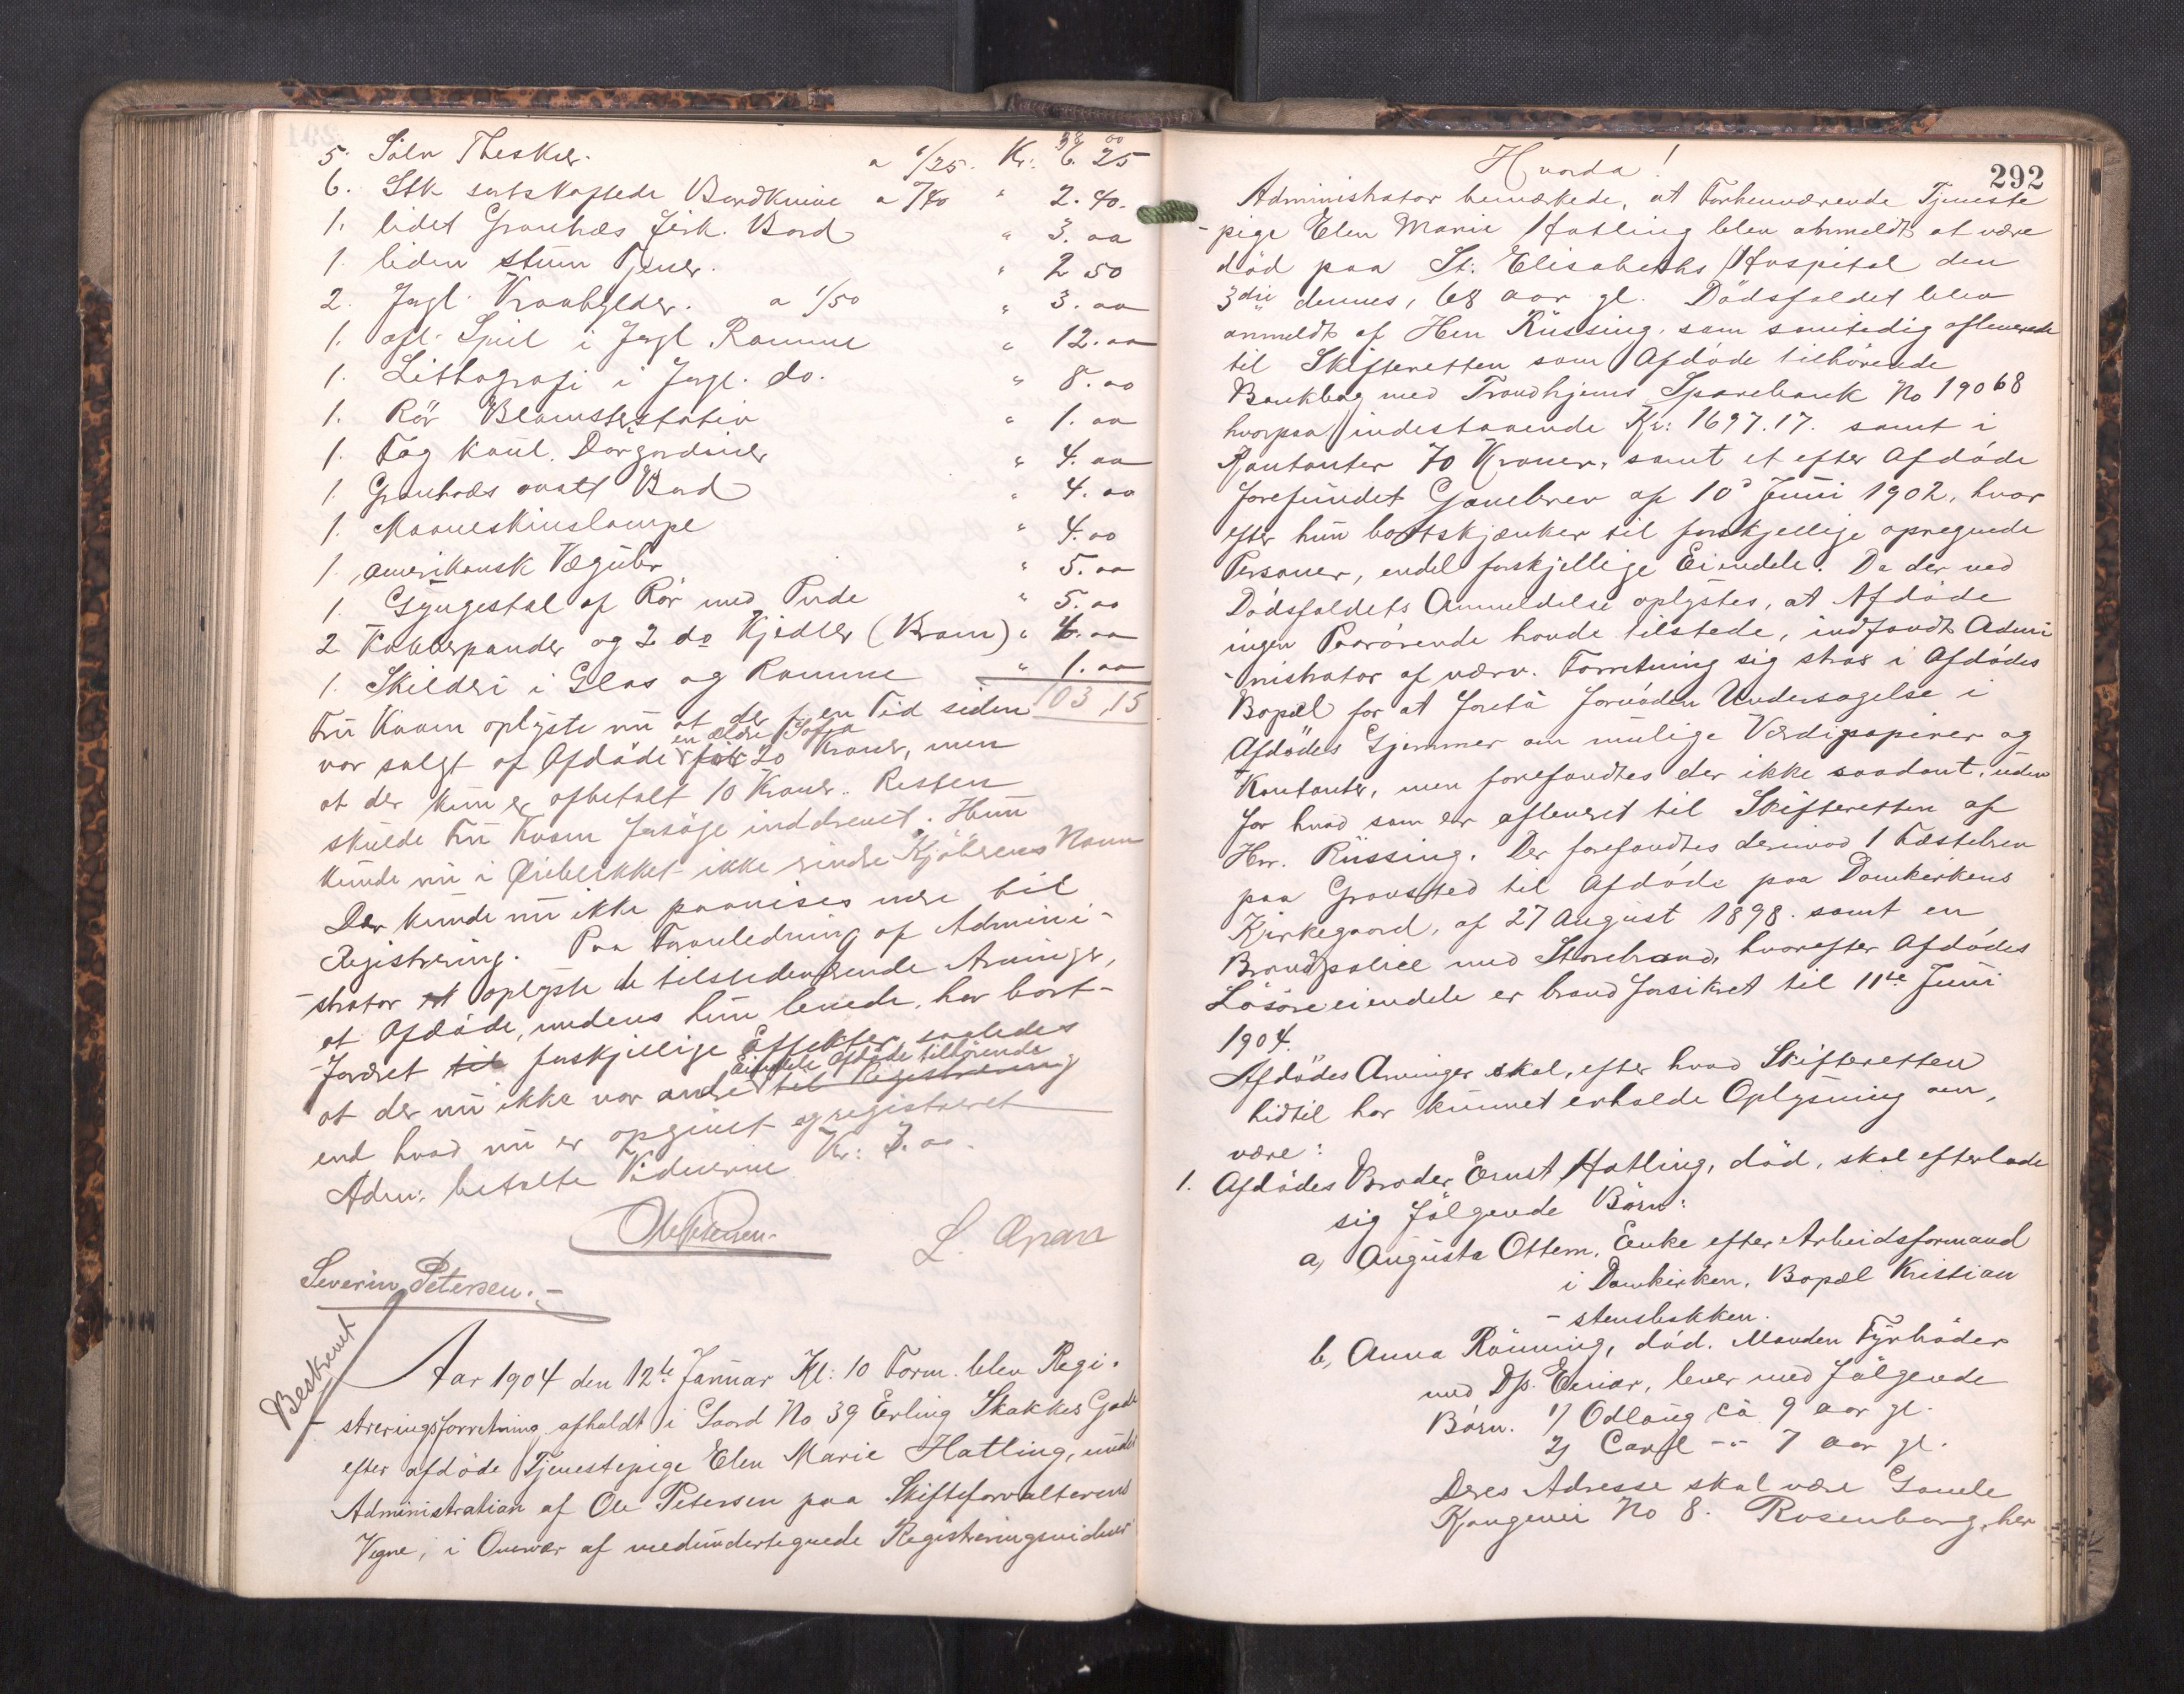 5. Sölv Theskeer. a 1/25. Kr: 6. 25
6. Stk sortskaftede Bordknive a /40 " 2. 40.
1. lidet Granhæs firk. Bord " 3. 00
1. liden stum Tjener. " 2 50
2. Jagl. Kraahylder. a 1/50 " 3. 00
1. ofl. Speil i Jagl. Ramme " 12. 00
1. Lithografi i Jagl. do. " 8. 00
1. Rör Blomsterstativ " 1. 00
1. Fag koul. Dörgardiner " 4. 00
1. Granhæs ovalt Bord " 4. 00
1. Maaneskinslampe " 4. 00
1. amerikansk Vægübr " 5. 00
1. Gyngestol af Rör med Pude " 5. 00
2 Kobberpander og 2 do Kjedler (Kram) " 4. 00
1. Skilderi i Glas og Ramme " 1. 00
103,15
Fru Kvam oplyste nu at der for en Tid siden
en ældre Sofa
var solgt af Afdöde for 20 Kroner, men
at der kun er afbetalt 10 Kroner. Resten
skulde Fru Kvam forsöge inddrevet. Hun
kunde nu i Öieblikket ikke erindre Kjöberens Navn
Der kunde nu ikke paavises mere til
Registrering. Paa Foranledning af Admini-
-strator oplyste de tilstedeværende Arvinger,
at Afdöde, medens hun levede, har bort-
foræret til forskjellige Effekter, saaledes
Eiendele Afdöde tilhörende
at der nu ikke var andre til Registrering
end hvad nu er opgivet og registreret
Adm: betalte Vidnerne Kr: 3. 00.
Ole Petersen. L. Aran
Severin Petersen.
Beskrevet
Aar 1904 den 12te Januar Kl: 10 Form. blev Regi-
streringsforretning afholdt i Gaard No 39 Erling Skakkes Gade
efter afdöde Tjenestepige Elen Marie Hatling, under
Administration af Ole Petersen paa Skifteforvalterens
Vegne, i Overvær af medundertegnede Registreringsvidner
292
Hvorda!
Administrator bemærkede, at Forhenværende Tjeneste
-pige Elen Marie Hatling blev anmeldt at være
död paa St: Elisabeths Hospital den
3die dennes, 68 aar gl. Dödsfaldet blev
anmeldt af Herr Rüssing, som samtidig afleverede
til Skifteretten som Afdöde tilhörende
Bankbog med Trondhjems Sparebank No 19068
hvorpaa indestaaende Kr: 1697.17. samt i
Kontanter 70 Kroner, samt et efter Afdöde
forefundet Gavebrev af 10de Juni 1902, hvor
efter hun bortskjænker til forskjellige opregnede
Personer, endel forskjellige Eiendele. Da der ved
Dödsfaldets Anmeldelse oplystes, at Afdöde
ingen Paarörende havde tilstede, indfandt Admi
-nistrator af nærv. Forretning sig strax i Afdödes
Bopæl for at foreta fornöden Undersögelse i
Afdödes Gjemmer om mulige Værdipapirer og
Kontanter, men forefandtes der ikke saadant, uden
for hvad som er afleveret til Skifteretten af
Herr. Rüssing. Der forefandtes derimod 1 Fæstebrev
paa Gravsted til Afdöde paa Domkirkens
Kirkegaard, af 27 August 1898. samt en
Brandpolice med Storebrand, hvorefter Afdödes
Lösöreeiendele er brandforsikret til 11te Juni
1904.
Afdödes Arvinger skal, efter hvad Skifteretten
hidtil har kunnet erholde Oplysning om,
være:
1. Afdödes Broder Ernst Hatling, död, skal efterlade
sig fölgende Börn:
a, Augusta Ottem, Enke efter Arbeidsformand
i Domkirken, Bopæl Kristian
-stensbakken.
b, Anna Rönning, död. Manden Fyrböder
med D/s. Einar, lever med fölgende
Börn. 1) Odlaug ca 9 aar gl.
2) Carl -"- 7 aar gl.
Deres Adresse skal være Gamle
Kongevei No 8. Rosenborg, her